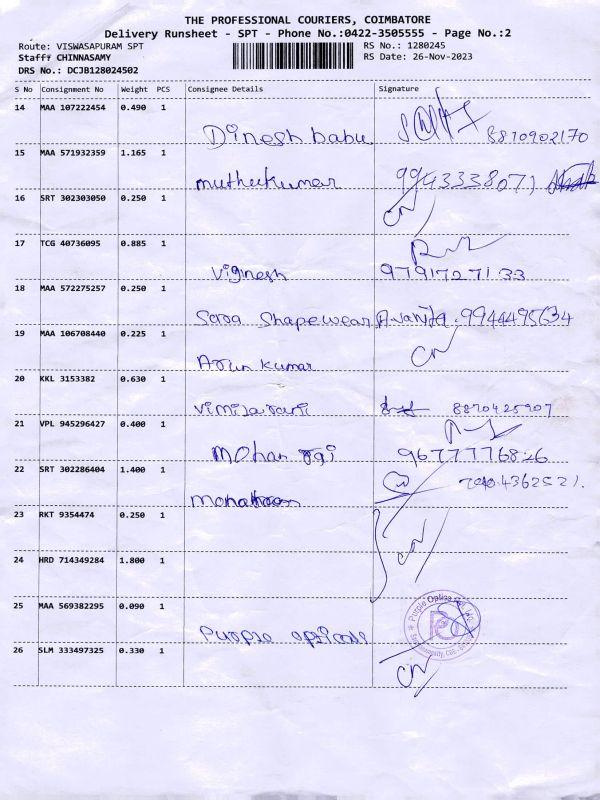 THE PROFESSIONAL COURIERS, COIMBATORE
Delivery Runsheet - SPT - Phone No.:0422-3505555 - Page No.:2
Route: VISWASAPURAM SPT
RS No.: 1280245
Stafff CHINNASAMY
RS Date: 26-Nov-2023
DRS No.: DCJB128024502
S No Consignment No Weight PCS Consignee Details Signature
14 MAA 107222454 0.490 1
Dinesh babu 8870902170
15 MAA 571932359 1.165 1
muthukumar 9943338071
16 SRT 302303050 0.250 1
CN
17 TCG 40736095 0.885 1
Viginesh 9791727133
18 MAA 572275257 0.250 1
Sara Shapewear A.vanita. 9944495634
19 MAA 106708440 0.225 1
Arun kumar CN
20 KKL 3153382 0.630 1
vimilarani 8870425907
21 VPL 945296427 0.400 1
Mohan raj 9677776826
22 SRT 302286404 1.400 1
23 RKT 9354474 0.250 1
CN
24 HRD 714349284 1.800 1
25 MAA 569382295 0.090 1
Purple opticals
Purple Optics
26 SLM 333497325 0.330 1
CN